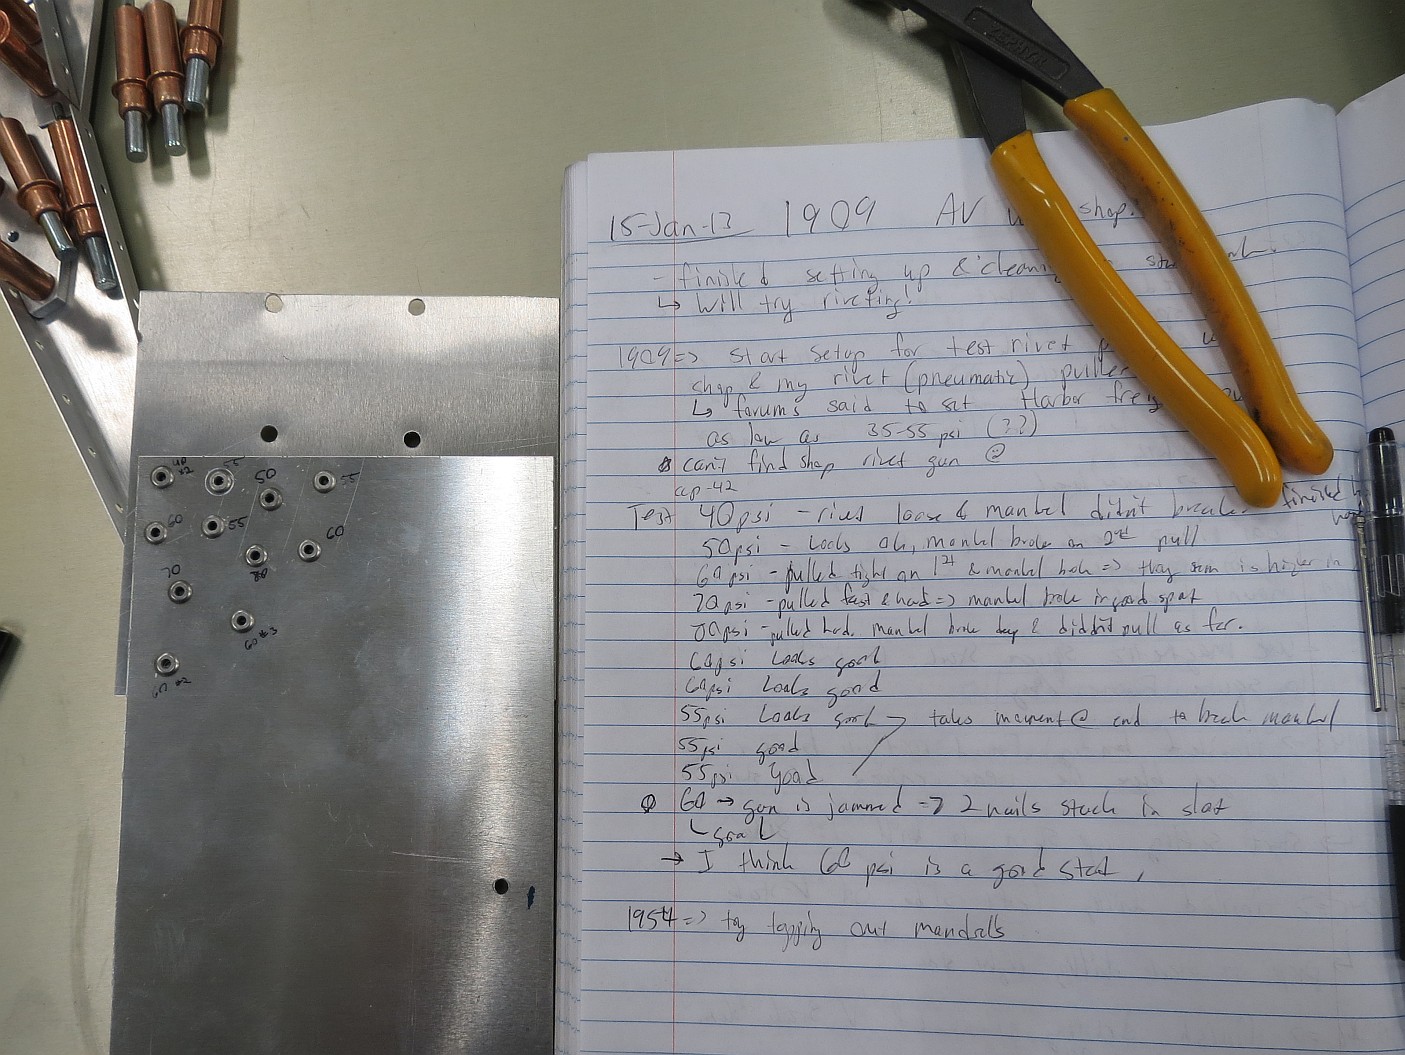 ZEPHYR
15-Jan-13 1909 AV shop.
- finised setting up & cleaning
↳ Will try riveting!
1909 => start setup for test rivet
shop & my rivet (pneumatic) puller
↳ forums said to set Harbor freig
as low as 35-55 psi (??)
can't find shop rivet gun @
cap-42
Test 40psi - rivet loose & mankel didn't break finished
50psi - Looks ok, mankel broke on 2nd pull
60psi - pulled tight on 1st & mankel broke => is higher in
70psi - pulled fast & hard => mankel broke in good spot
80psi - pulled hard. mankel broke deep & diddn't pull as far.
60psi Looks good
60psi Looks good
55psi Looks good takes moment @ end to break mankel
55psi good
55psi Good
60 → gun is jammed => 2 nails stuck in slot
good
→ I think 60 psi is a good start.
1954 => try tapping out mandrells
40 x2
55
50
55
60
55
60
80
70
60 #3
60 #2